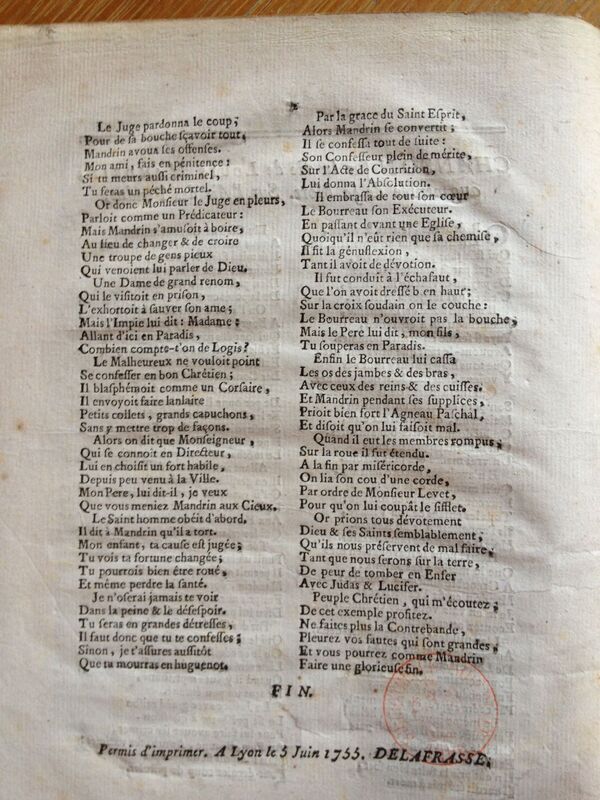 Le Juge pardonna le coup;
Pour de sa bouche sçavoir tout,
Mandrin avoua ses offenses.
Mon ami, fais en pénitence:
Si tu meurs aussi criminel,
Tu feras un péché mortel.
Or donc Monsieur le Juge en pleurs,
Parloit comme un Prédicateur:
Mais Mandrin s'amusoit à boire,
Au lieu de changer & de croire
Une troupe de gens pieux
Qui venoient lui parler de Dieu.
Une Dame de grand renom,
Qui le visitoit en prison,
L'exhortoit à sauver son ame;
Mais l'Impie lui dit: Madame:
Allant d'ici en Paradis,
Combien compte-t'on de Logis?
Le Malheureux ne vouloit point
Se confesser en bon Chrétien;
Il blasphémoit comme un Corsaire,
Il envoyoit faire lanlaire
Petits collets, grands capuchons,
Sans y mettre trop de façons.
Alors on dit que Monseigneur,
Qui se connoit en Directeur,
Lui en choisit un fort habile,
Depuis peu venu à la Ville.
Mon Pere, lui dit-il, je veux
Que vous meniez Mandrin aux Cieux.
Le Saint homme obéit d'abord,
Il dit à Mandrin qu'il a tort.
Mon enfant, ta cause est jugée;
Tu vois ta fortune changée;
Tu pourrois bien être roué,
Et même perdre la santé.
Je n'oserai jamais te voir
Dans la peine & le désespoir.
Tu seras en grandes détresses,
Il faut donc que tu te confesses;
Sinon, je t'assures aussitôt
Que tu mourras en huguenot.
Par la grace du Saint Esprit,
Alors Mandrin se convertit;
Il se confessa tout de suite:
Son Confesseur plein de mérite,
Sur l'Acte de Contrition,
Lui donna l'Absolution.
Il embrassa de tout son cœur
Le Bourreau son Exécuteur.
En passant devant une Eglise,
Quoiqu'il n'eût rien que sa chemise,
Il fit la génuflexion,
Tant il avoit de dévotion.
Il fut conduit à l'échafaut,
Que l'on avoit dressé b en haut;
Sur la croix soudain on le couche:
Le Bourreau n'ouvroit pas la bouche,
Mais le Pere lui dit, mon fils,
Tu souperas en Paradis.
Enfin le Bourreau lui cassa
Les os des jambes & des bras,
Avec ceux des reins & des cuisses.
Et Mandrin pendant ses supplices,
Prioit bien fort l'Agneau Paschal,
Et disoit qu'on lui faisoit mal.
Quand il eut les membres rompus,
Sur la roue il fut étendu.
A la fin par miséricorde,
On lia son cou d'une corde,
Par ordre de Monsieur Levet,
Pour qu'on lui coupât le sifflet.
Or prions tous dévotement
Dieu & ses Saints semblablement,
Qu'ils nous préservent de mal faire,
Tant que nous serons sur la terre,
De peur de tomber en Enfer
Avec Judas & Lucifer.
Peuple Chrétien, qui m'écoutez,
De cet exemple profitez.
Ne faites plus la Contrebande,
Pleurez vos fautes qui sont grandes,
Et vous pourrez comme Mandrin
Faire une glorieuse fin.
FIN.
Permis d'imprimer. A Lyon le 5 Juin 1755. DELAFRASSE;